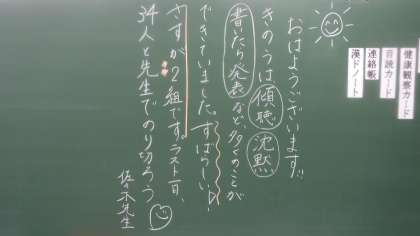 健康観察カード
音読カード
連絡帳
漢ドノート
おはようございます!!
きのうは傾聴 沈黙
書いたら発表など、多くのことが
できていました。すばらしい!
さすが2組です。ラスト1日、
34人と先生でのり切ろう
佐々木先生